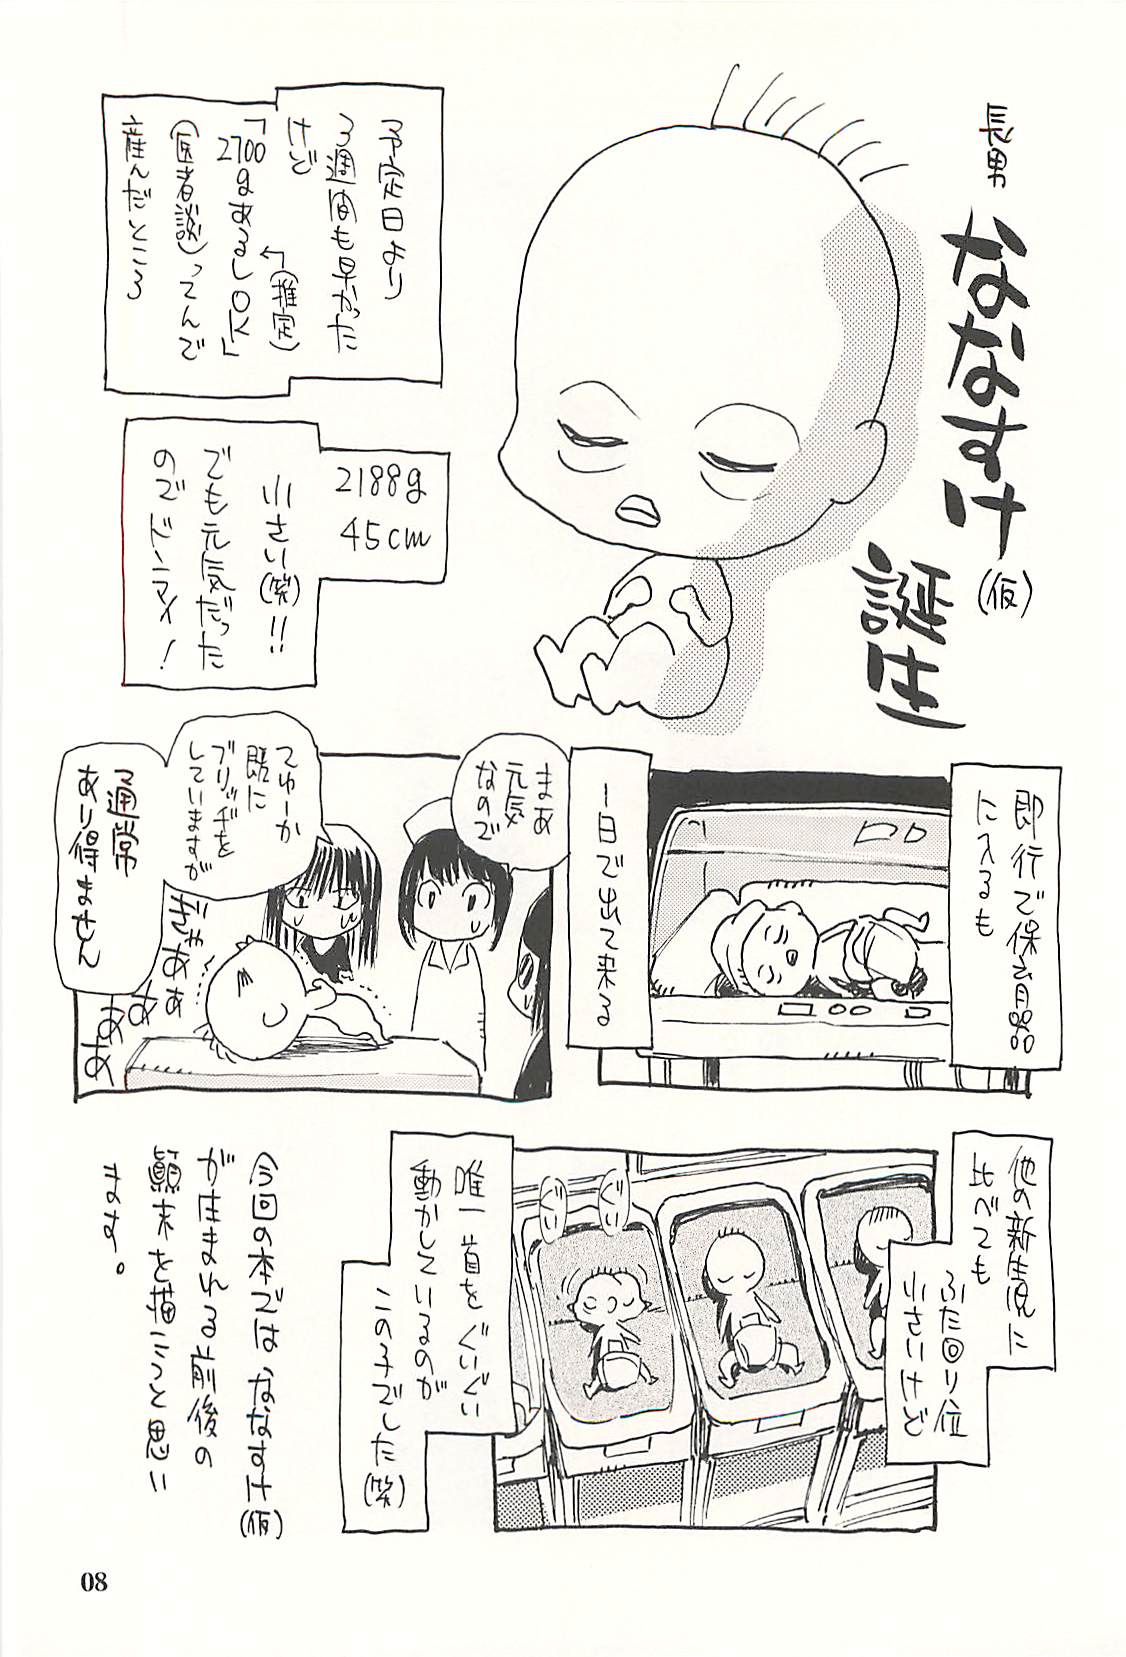 長男
ななすけ(仮)
誕生
予定日より
3週間も早かった
けど
「2700gあるしOK」
←(推定)
(医者談)ってんで
産んだところ
2188g
45cm
小さい(笑)!!
でも元気だった
のでドンマイ!
即行で保育器
に入るも
一日で出て来る
まあ
元気
なので
てゆーか
既に
ブリッヂを
していますが
通常
あり得ません
ぎゃあああああ
他の新生児に
比べても
ふた回り位
小さいけど
ぐいぐい
唯一首をぐいぐい
動かしているのが
この子でした(笑)
今回の本では、ななすけ(仮)
が生まれる前後の
顛末を描こうと思い
ます。
08